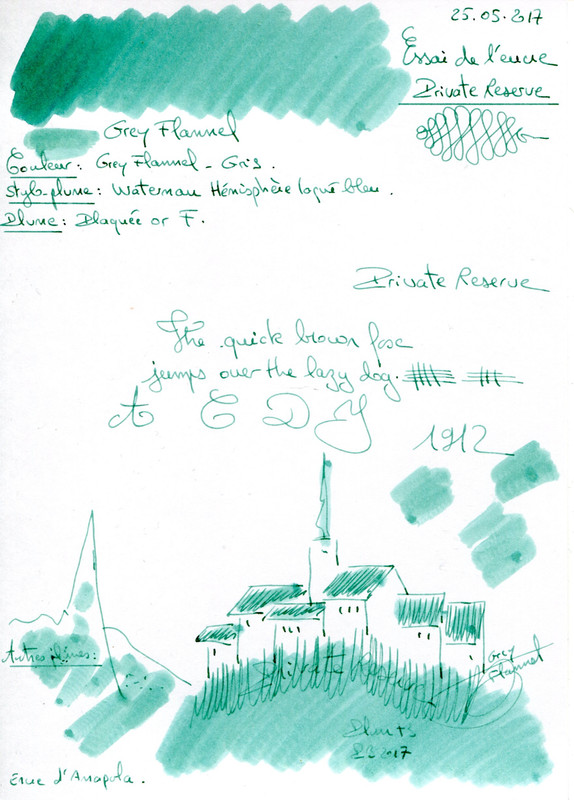 25.05.2017
Essai de l'encre
Private Reserve
Grey Flannel
Couleur: Grey Flannel - Gris.
Stylo-plume: Waterman Hémisphère laqué bleu.
Plume: Plaquée or F.
Private Reserve
The quick brown fox
jumps over the lazy dog.
A E D Y
1912
Autres lignes:
Private Reserve
Grey
Flannel
2017
d'Anapola.